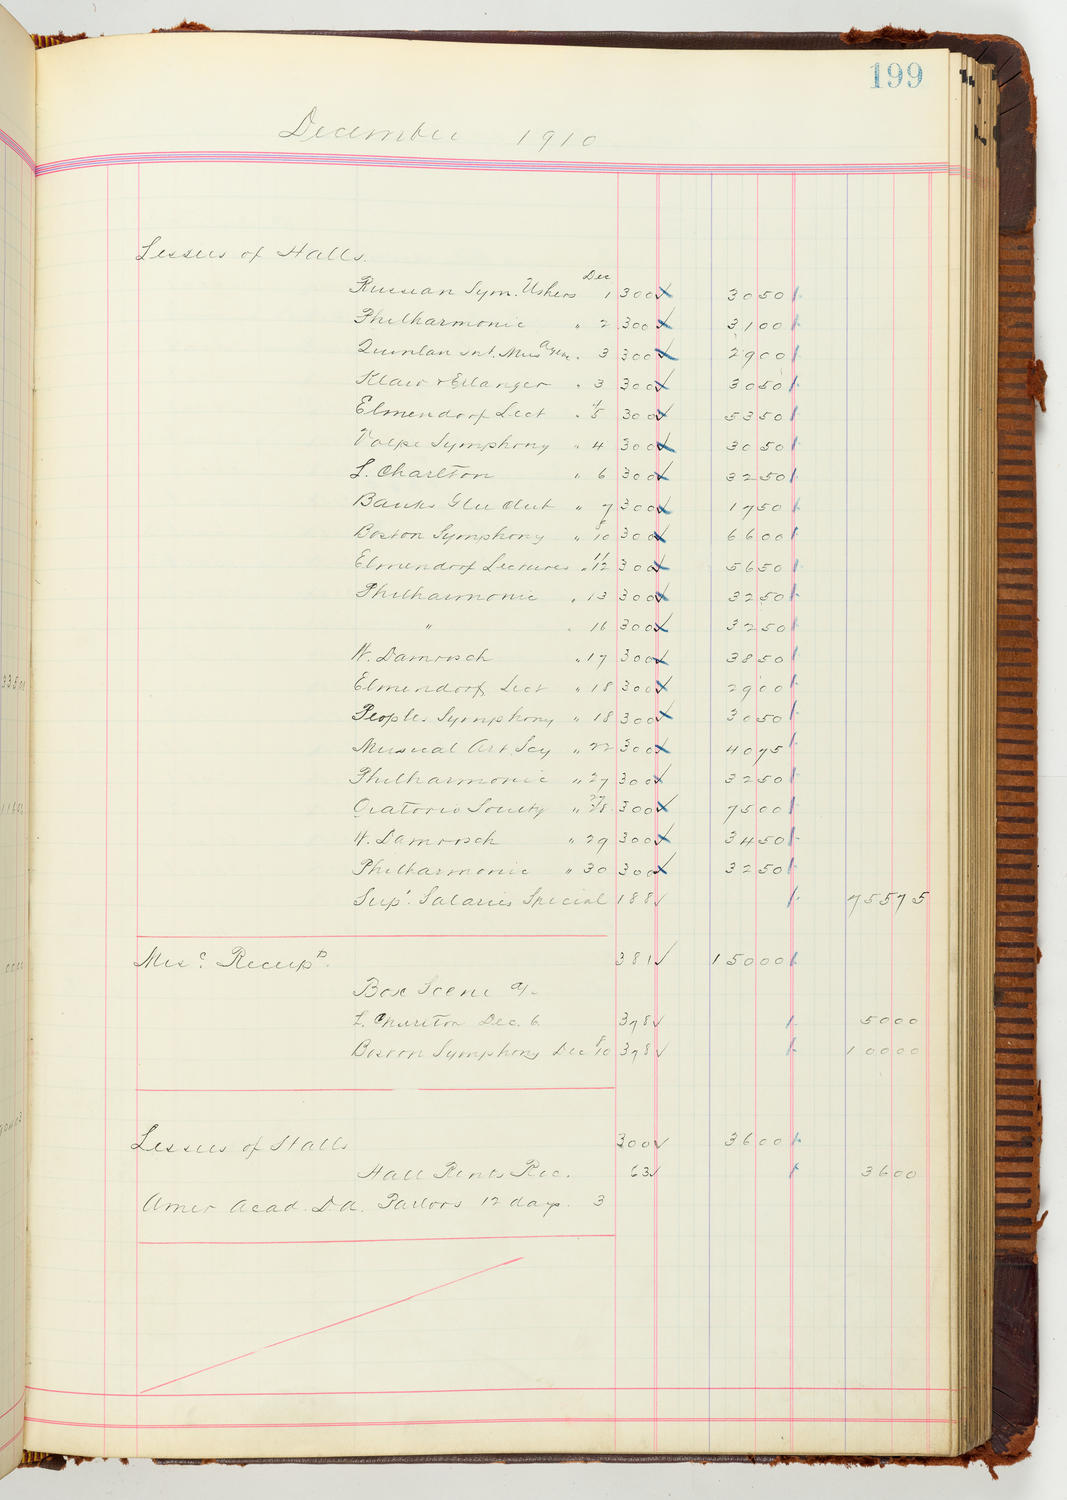 199
December 1910
Lessees of Halls.
Dec
Russian Sym. Ushers 1 300 30 50
Philharmonic " 2 300 31 00
Quinlan Int. Mus Agen. " 3 300 29 00
Klaw & Erlanger " 3 300 30 50
Elmendorf Lect " 4/5 300 53 50
Volpe Symphony " 4 300 30 50
L. Charlton " 6 300 32 50
Banks Glee Club " 7 300 17 50
Boston Symphony " 8/10 300 66 00
Elmendorf Lectures " 11/12 300 56 50
Philharmonic " 13 300 32 50
" " 16 300 32 50
W. Damrosch " 17 300 38 50
Elmendorf Lect " 18 300 29 00
Peoples Symphony " 18 300 30 50
Musical Art Socy " 22 300 40 75
Philharmonic " 27 300 32 50
Oratorio Society " 27/28 300 75 00
W. Damrosch " 29 300 34 50
Philharmonic " 30 300 32 50
Sup't. Salaries Special 188 755 75
Misc. Receipts. 381 150 00
Box Scene a/c
L. Charlton Dec. 6 378 50 00
Boston Symphony Dec 8/10 378 100 00
Lessees of Halls 300 36 00
Hall Rents Rec. 63 36 00
Amer Acad. D.A. Parlors 12 days. 3